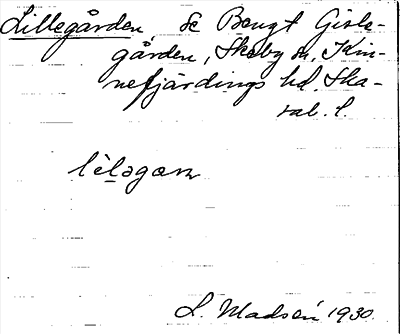 Lillegården, se Bengt Gisle-
gården, Skeby sn, Kin-
nefjärdings hd. Ska-
rab. l.
lèlagæn
L. Madsén 1930.